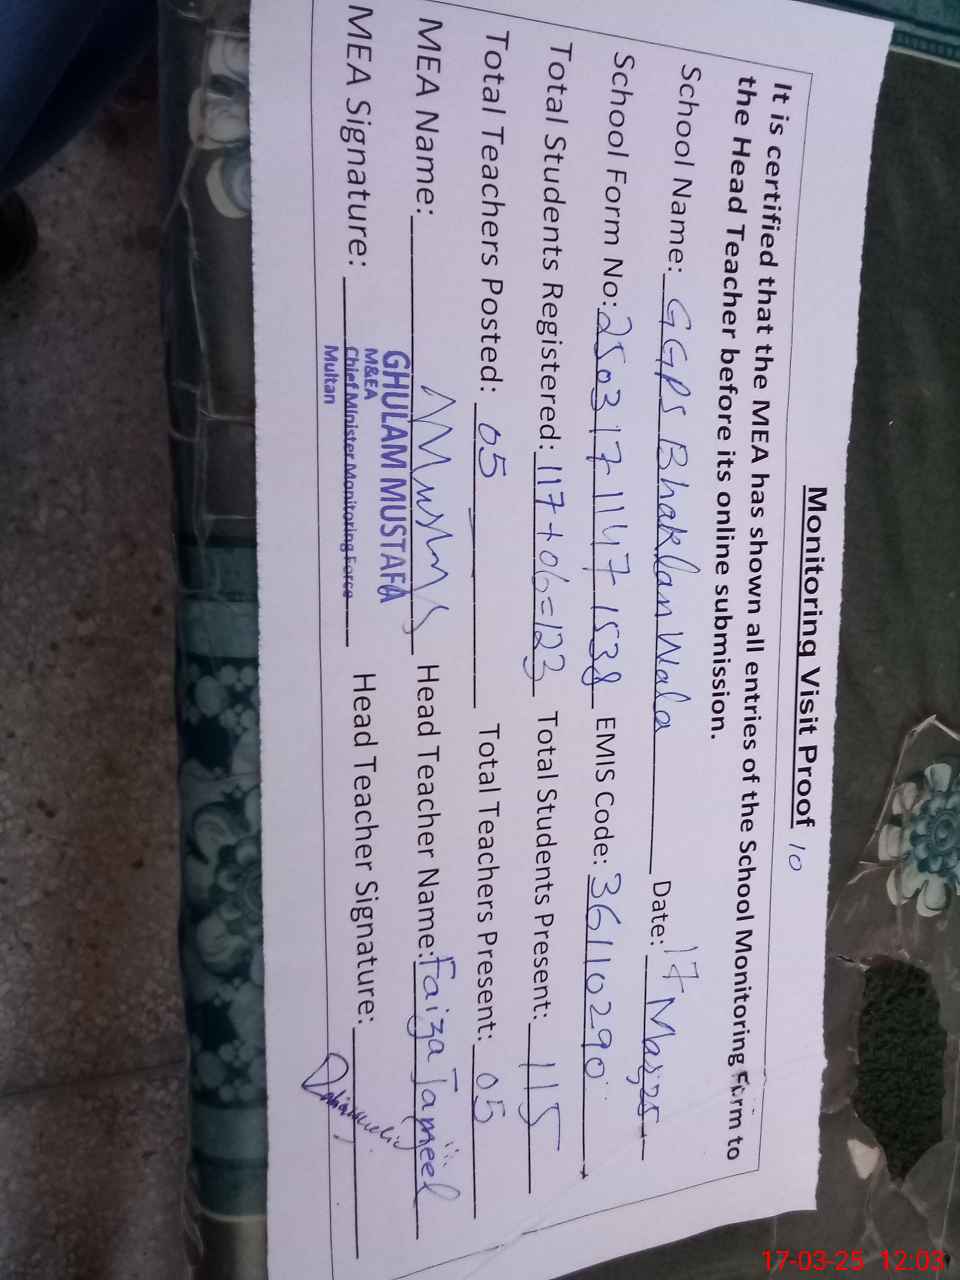 Monitoring Visit Proof 10
It is certified that the MEA has shown all entries of the School Monitoring Form to
the Head Teacher before its online submission.
School Name: GGPS Bhaklan Wala Date: 17 Mar,25
School Form No: 25031711471538 EMIS Code: 36110290
Total Students Registered: 117+06=123 Total Students Present: 115
Total Teachers Posted: 05 Total Teachers Present: 05
MEA Name: Head Teacher Name: Faiza Jameel
GHULAM MUSTAFA
M&EA
MEA Signature: Head Teacher Signature:
Chief Minister Monitoring Force
Multan
17-03-25 12:03